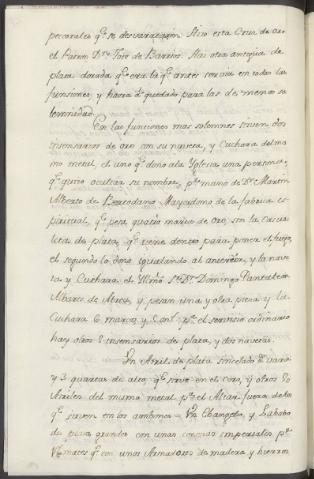 pectorales q.e se desvaratasen. Hizo esta Cruz de oro
el Patron D.n Jose de Barrios. Hai otra antigua de
plata dorada q.e era la q.e antes servia en todas las
funciones, y haora ha quedado para las de menos so
lemnidad.
En las funciones mas solemnes sirven dos
insensarios de oro con su naveta, y Cuchara del mis
mo metal, el uno q.e dono ala Yglesia una persona,
q.e quiso ocultar su nombre, p.r mano de D.n Martin
Alberto de Mayordomo de la fabrica es
piritual, q.e pesa quatro marcos de oro, con la
lita de plata, q.e viene dentro para poner el fuego,
el segundo lo dono igualando al anterior, y la nave
ta y Cuchara el Yllmo S.r D.r Domingo Pantaleon
Alvarez de Abreu, y pesan una y otra pieza y la
Cuchara 6 marcos, y 5 p.a el servicio ordinario
hay otros insensarios de plata, y dos navetas.
Un Atril de plata sincelado de vara
y 3 quartas de alto q.e sirve en el Coro, y otros
Atriles del mismo metal p.a el Altar, fuera de los
q.e sirven en los ambones Evangelio, y
de pieza grandes con unas coronas imperiales p.r
remates q.e con unas Armadores de madera y hierros